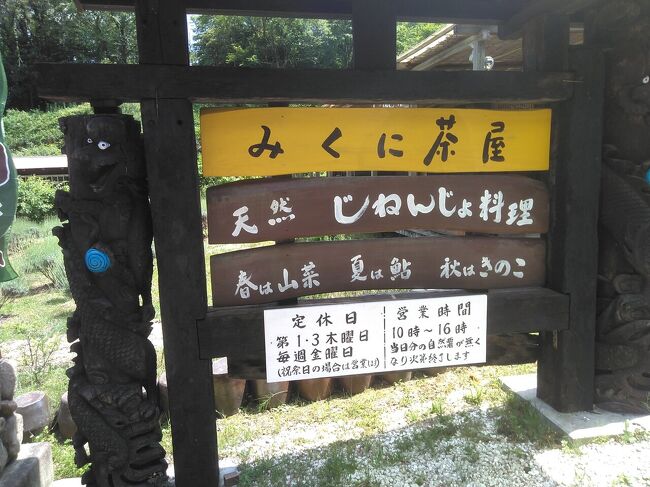 みくに茶屋
天然 じねんじょ料理
春は山菜 夏は鮎 秋はきのこ
定休日
第1・3木曜日
毎週金曜日
(祝祭日の場合は営業)
営業時間
10時～16時
当日分の自然薯が無く
なり次第終了します